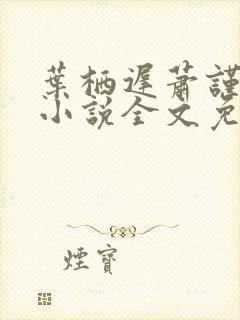 葉栖遲蕭謹
小說全文免
煙寶